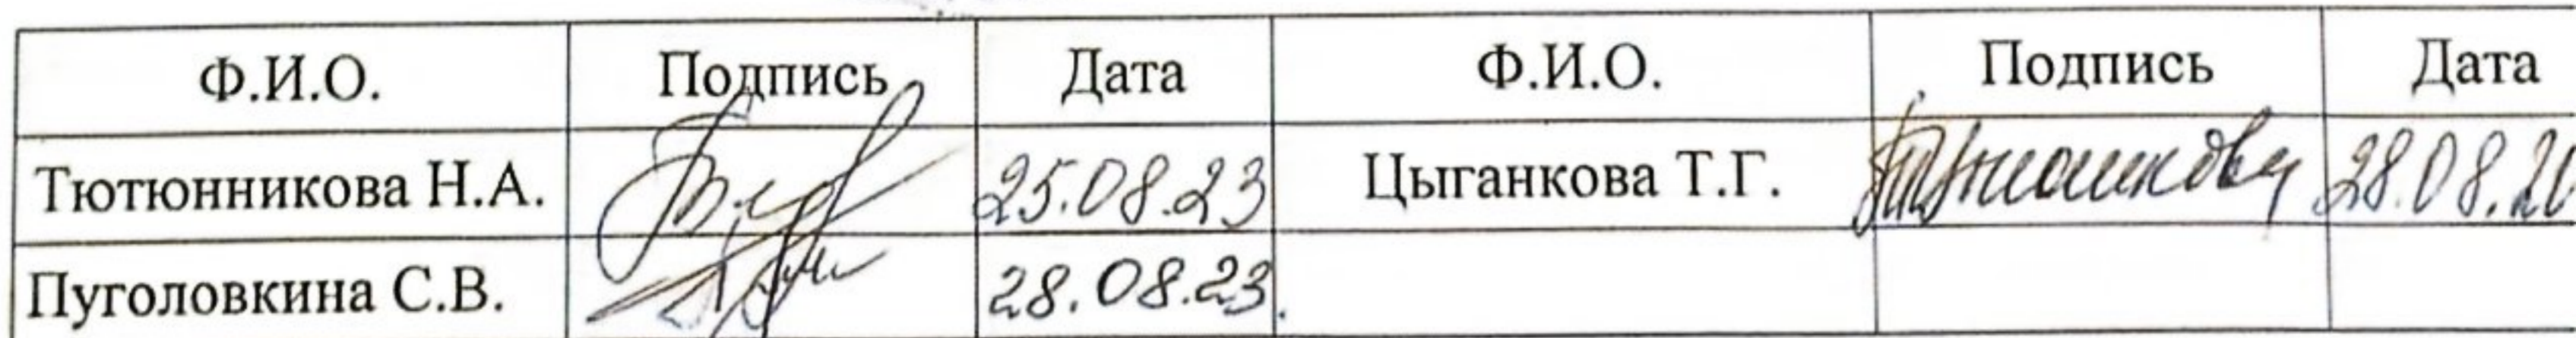 Ф.И.О. Подпись Дата Ф.И.О. Подпись Дата
Тютюнникова Н.А. 25.08.23 Цыганкова Т.Г. 28.08.20
Пуголовкина С.В. 28.08.23.